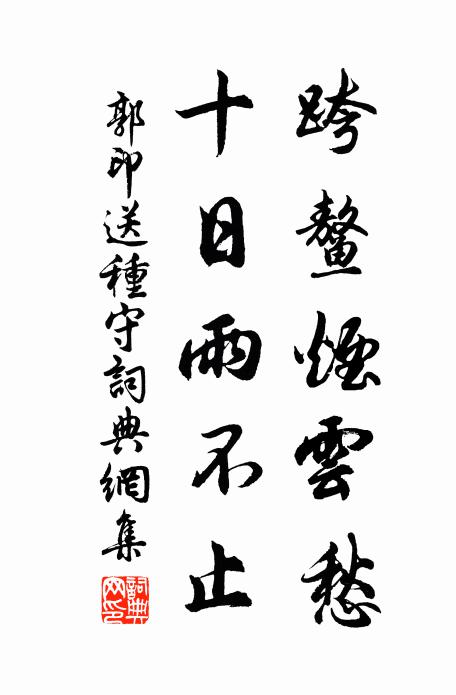 跨鰲煙雲愁
十日雨不止
郭印送種守詞典網集
詞典網印